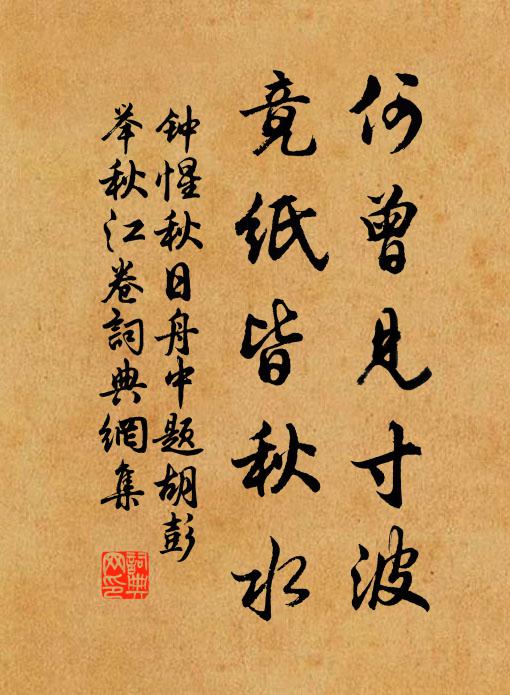 何曾见寸波
竟纸皆秋水
钟惺秋日舟中题胡彭
举秋江卷词典網集
詞典
网印